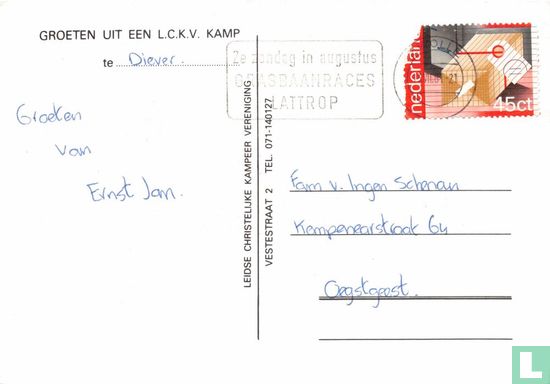 GROETEN UIT EEN L.C.K.V. KAMP
te Diever.
Groeten
van
Ernst Jan.
LEIDSE CHRISTELIJKE KAMPEER VERENIGING
VESTESTRAAT 2 TEL. 071-140127
2e zondag in augustus
GRASBAANRACES
LATTROP
nederland
45ct
Fam v. Ingen Schenau
Kempenaerstraat 64
Oegstgeest.
© LastDodo